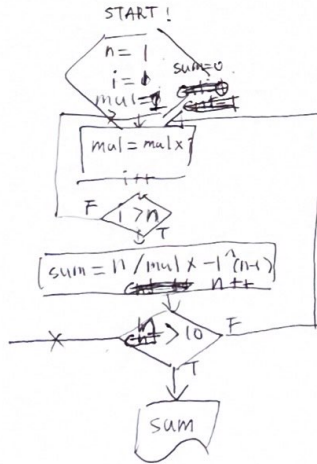 START!
n = 1
i = 1
mul=1
sum=0
mul = mul x i
i++
F
i > n
T
sum = n / mul x -1^(n-1)
n++
n > 10
F
T
sum